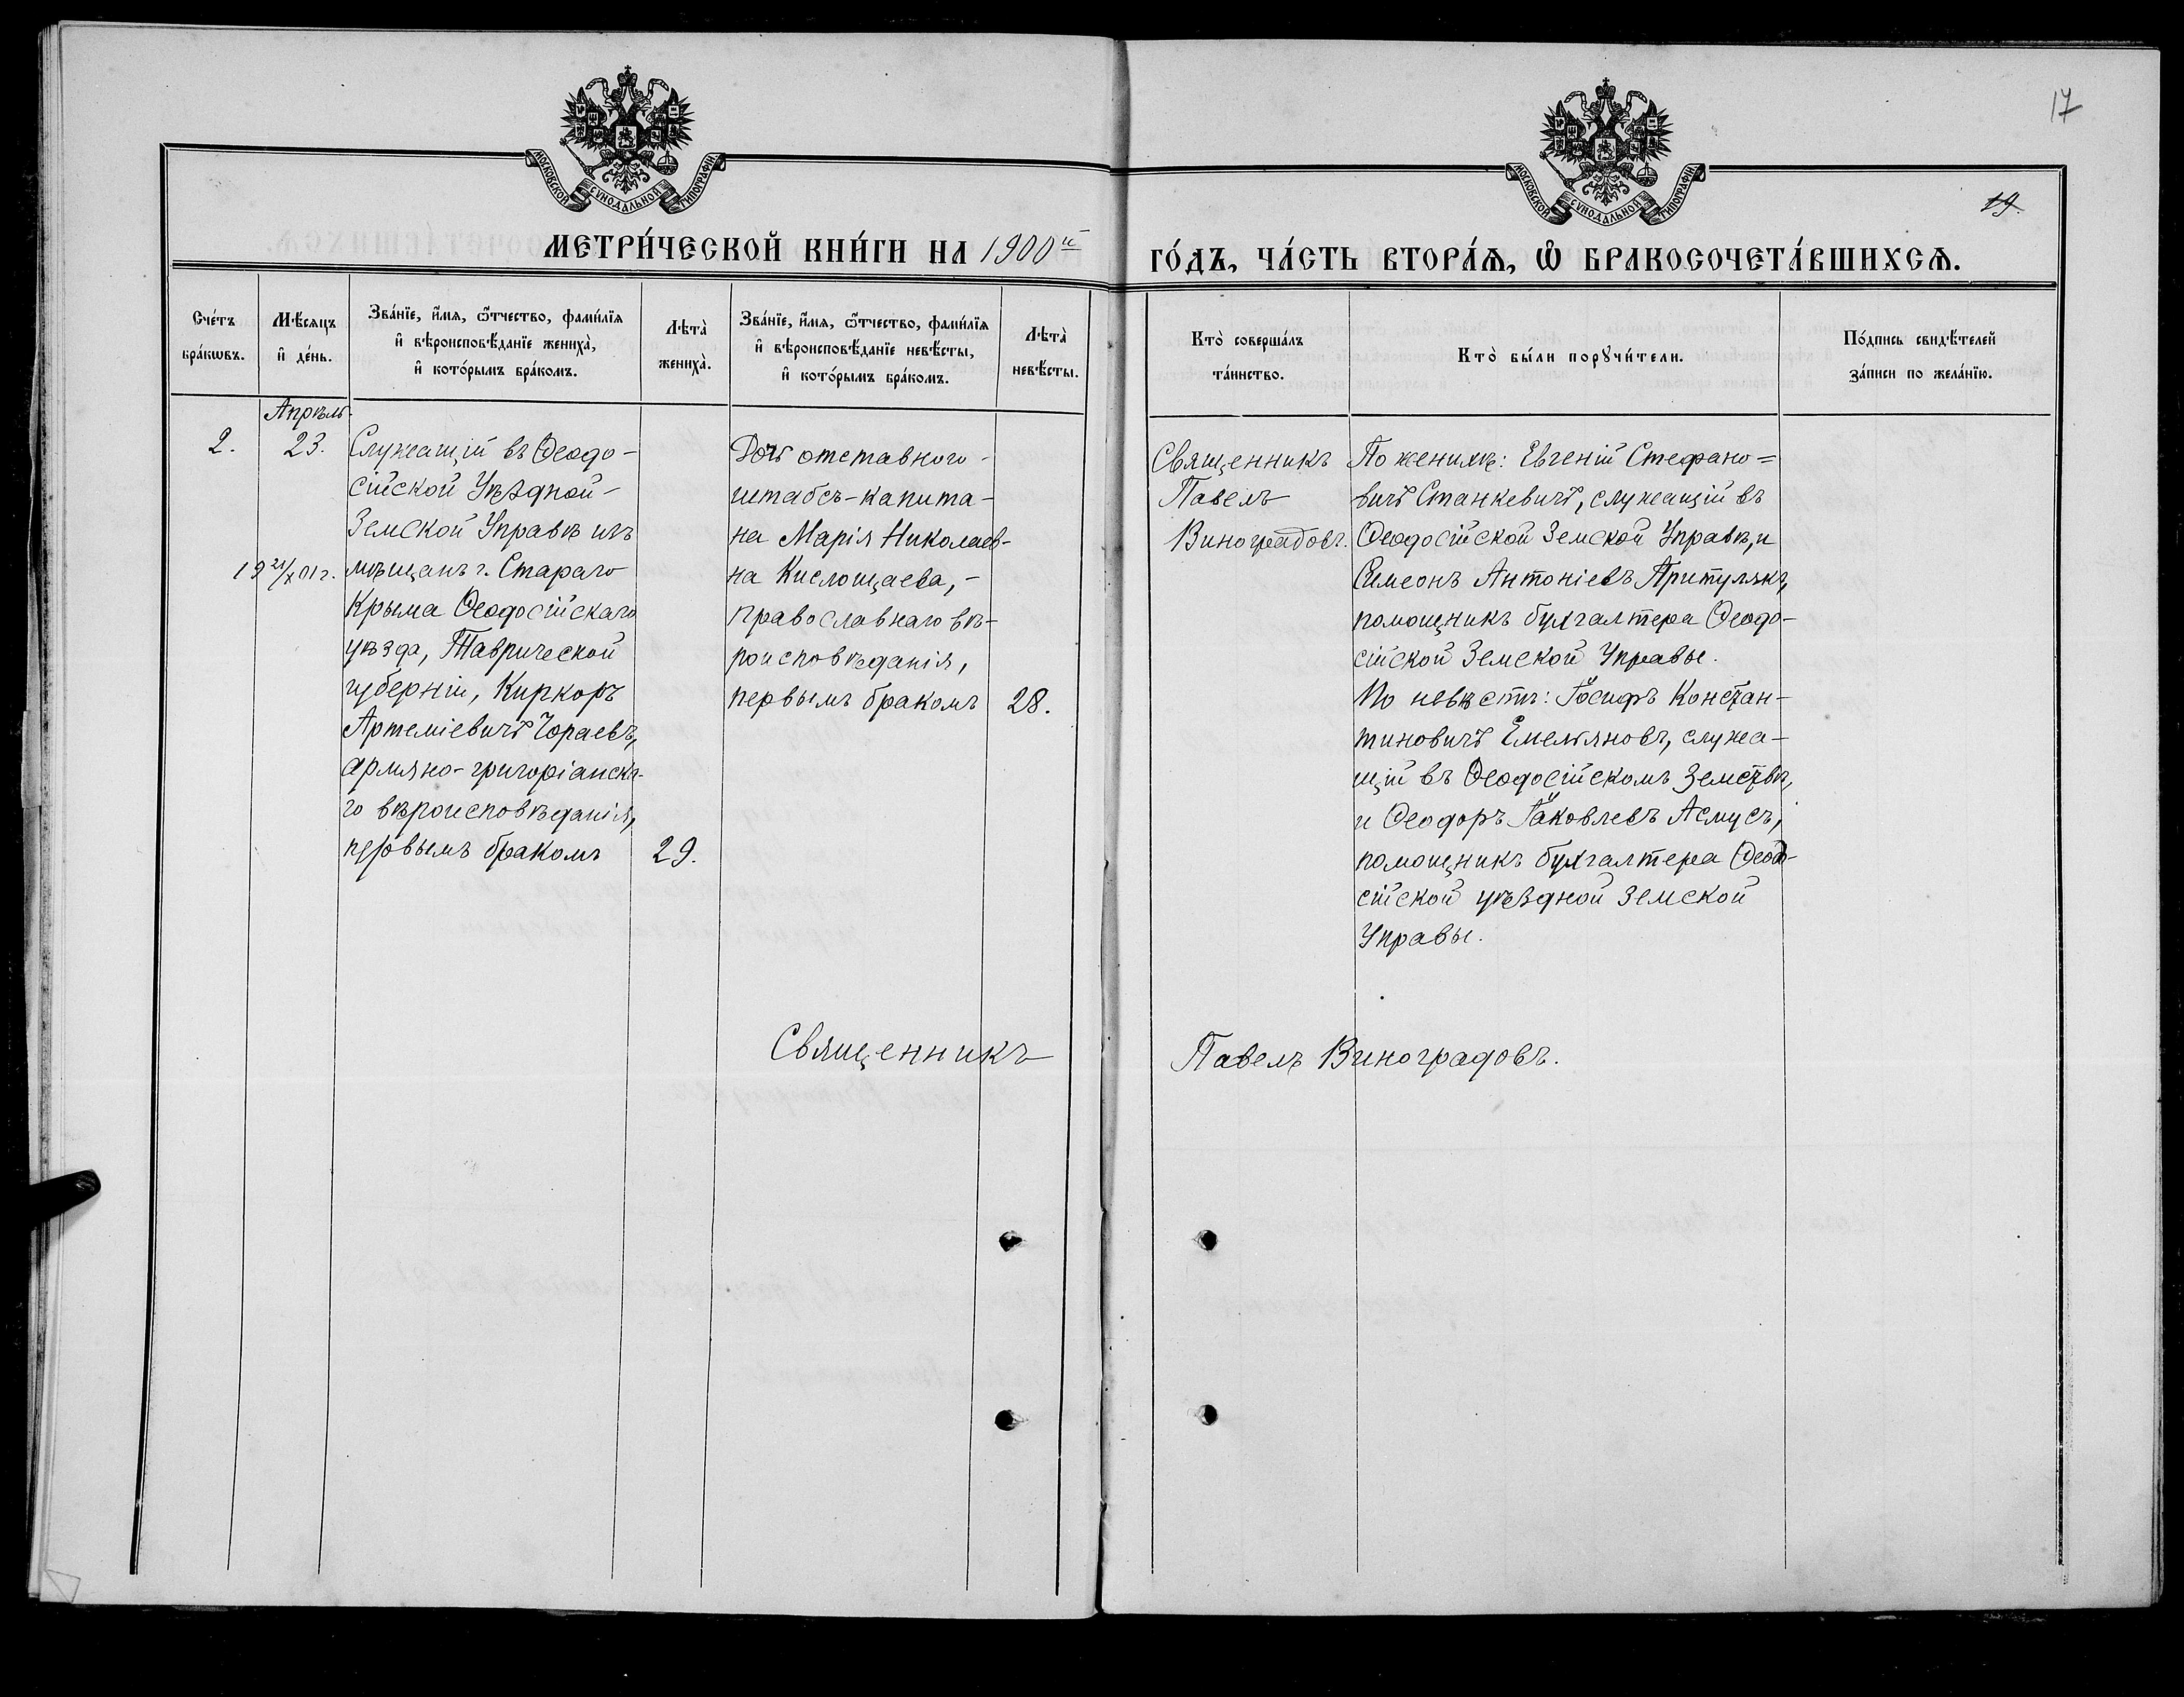 17
19.
МОСКОВСКОЙ СѴНОДАЛЬНОЙ ТИПОГРАФІИ
МОСКОВСКОЙ СѴНОДАЛЬНОЙ ТИПОГРАФІИ
МЕТРИ́ЧЕСКОЙ КНИ́ГИ НА 1900й
ГО́ДЪ, ЧА́СТЬ ВТОРА́Ѧ, Ѽ БРАКОСОЧЕТА́ВШИХСѦ.
Сче́тъ
бра́кѡвъ.
Мѣ́сяцъ
и҆ де́нь.
Зва́нїе, и҆́мя, ѻ҆́тчество, фами́лїя
и҆ вѣроисповѣ́данїе жениха̀,
и҆ кото́рымъ бра́комъ.
Лѣта̀
жениха̀.
Зва́нїе, и҆́мя, ѻ҆́тчество, фами́лїя
и҆ вѣроисповѣ́данїе невѣ́сты,
и҆ кото́рымъ бра́комъ.
Лѣта̀
невѣ́сты.
Кто̀ соверша́лъ
та́инство.
Кто̀ бы́ли порꙋчи́тели.
По́дпись свидѣ́телей
за́писи по жела́нїю.
Апрѣль.
2.
23.
Служащій въ Ѳеодо-
сійской Уѣздной-
Земской Управѣ изъ
19 21/X 01 г.
мѣщанъ г. Стараго
Крыма Ѳеодосійскаго
уѣзда, Таврической
губерніи, Киркоръ
Артеміевичъ Чораевъ,
армяно-григоріанска-
го вѣроисповѣданія,
первымъ бракомъ
29.
Дочь отставного-
штабсъ-капита-
на Марія Николаев-
на Кислощаева,-
православнаго вѣ-
роисповѣданія,
первымъ бракомъ
28.
Священникъ
Павелъ
Виноградовъ.
По женихѣ: Евгеній Стефано=
вичъ Станкевичъ, служащій въ
Ѳеодосійской Земской Управѣ, и
Симеонъ Антоніевъ Притулякъ,
помощникъ бухгалтера Ѳеодо-
сійской Земской Управы.
По невѣстѣ: Іосифъ Констан-
тиновичъ Емельяновъ, служа-
щій въ Ѳеодосійскомъ Земствѣ,
и Ѳеодоръ Іаковлевъ Асмусъ,
помощникъ бухгалтера Ѳеодо-
сійской уѣздной Земской
Управы.
Священникъ
Павелъ Виноградовъ.